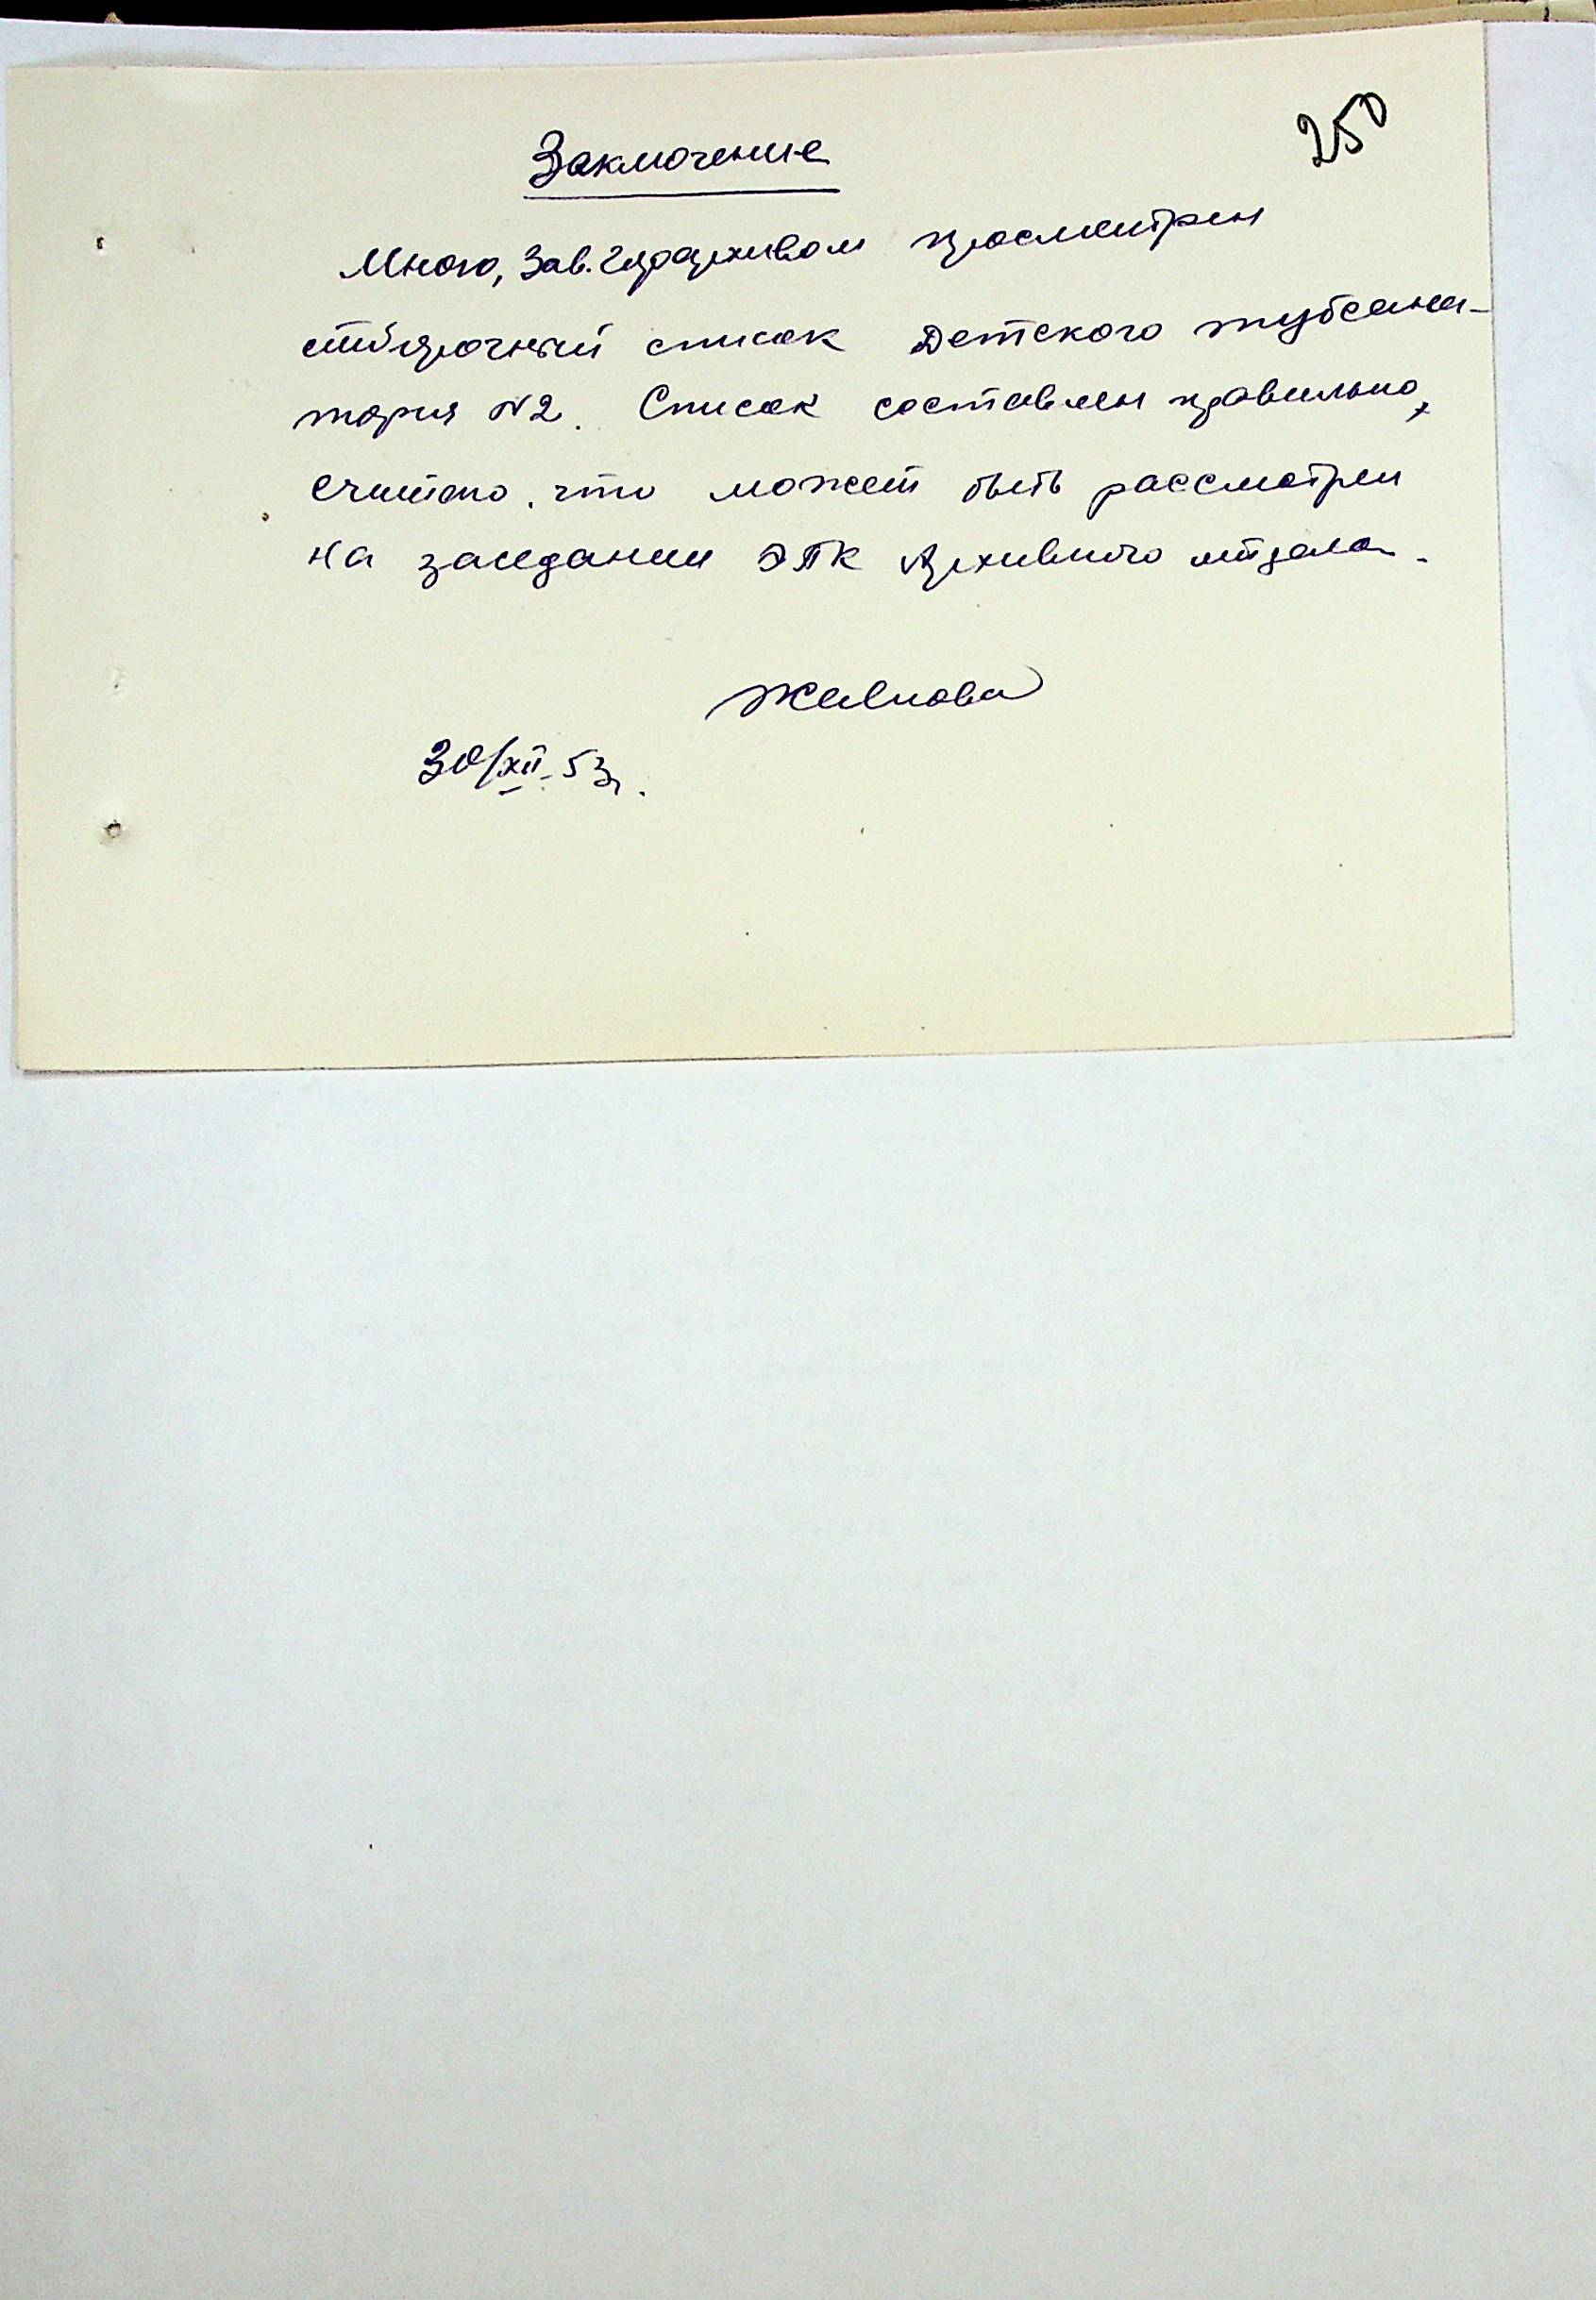 250
Заключение
Мною, Зав. Горархивом просмотрен
отборочный список Детского тубсана-
тория №2. Список составлен правильно,
считаю, что может быть рассмотрен
на заседании ЭПК Архивного отдела.
30/XII-53г.